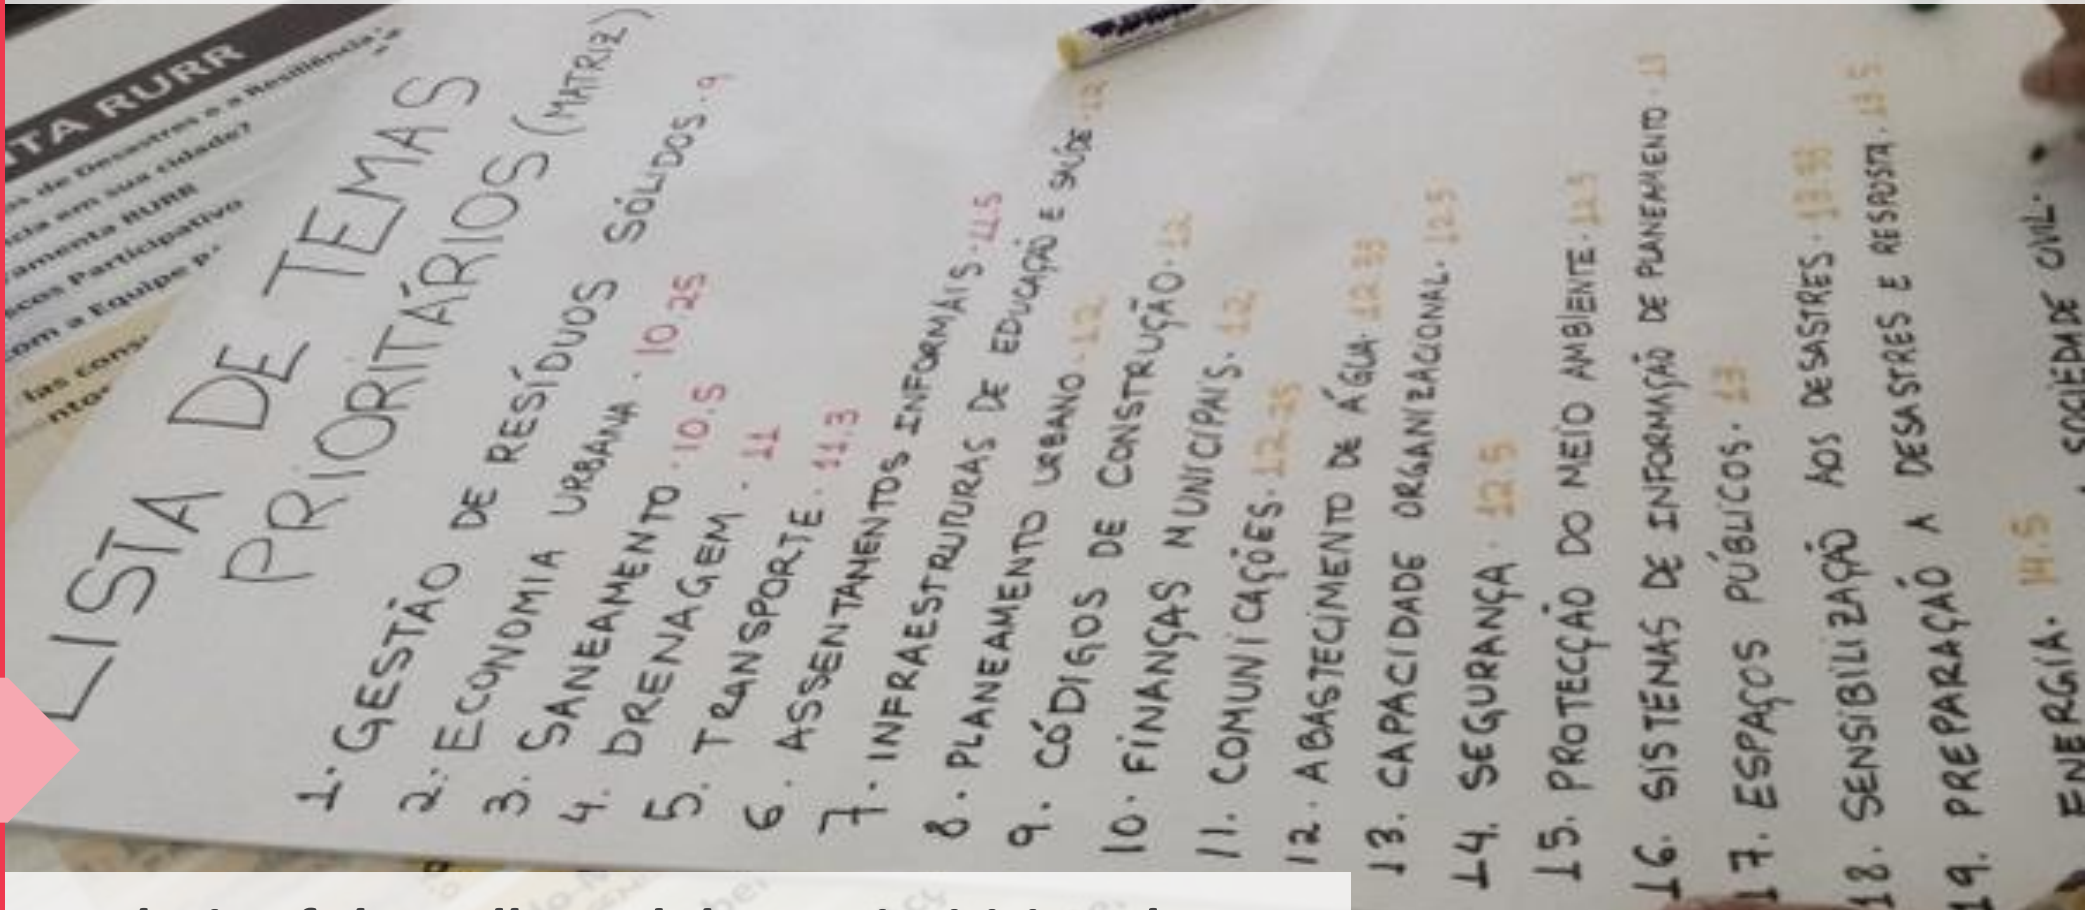 TA RURR
de Desastres e a Resiliência
em sua cidade?
RURR
Participativo
com a Equipe
las cons
LISTA DE TEMAS
PRIORITÁRIOS (MATRIZ)
1. GESTÃO DE RESÍDUOS SÓLIDOS. 9
2. ECONOMIA URBANA. 10.25
3. SANEAMENTO. 10.5
4. DRENAGEM. 11
5. TRANSPORTE. 11.3
6. ASSENTANENTOS INFORMAIS. 11.5
7. INFRAESTRUTURAS DE EDUCAÇÃO E SAÚDE. 12
8. PLANEAMENTO URBANO. 12
9. CÓDIGOS DE CONSTRUÇÃO. 12
10. FINANÇAS MUNICIPAIS. 12
11. COMUNICAÇÕES. 12.25
12. ABASTECIMENTO DE ÁGUA. 12.33
13. CAPACIDADE ORGANIZACIONAL. 12.5
14. SEGURANÇA. 12.5
15. PROTECÇÃO DO MEIO AMBIENTE. 12.5
16. SISTENAS DE INFORMAÇÃO DE PLANEAMENTO. 13
17. ESPAÇOS PÚBLICOS. 13
18. SENSIBILIZAÇÃO AOS DESASTRES. 13.33
19. PREPARAÇÃO A DESASTRES E RESPOSTA. 13.5
ENERGIA. 14.5
SOCIEDADE CIVIL.